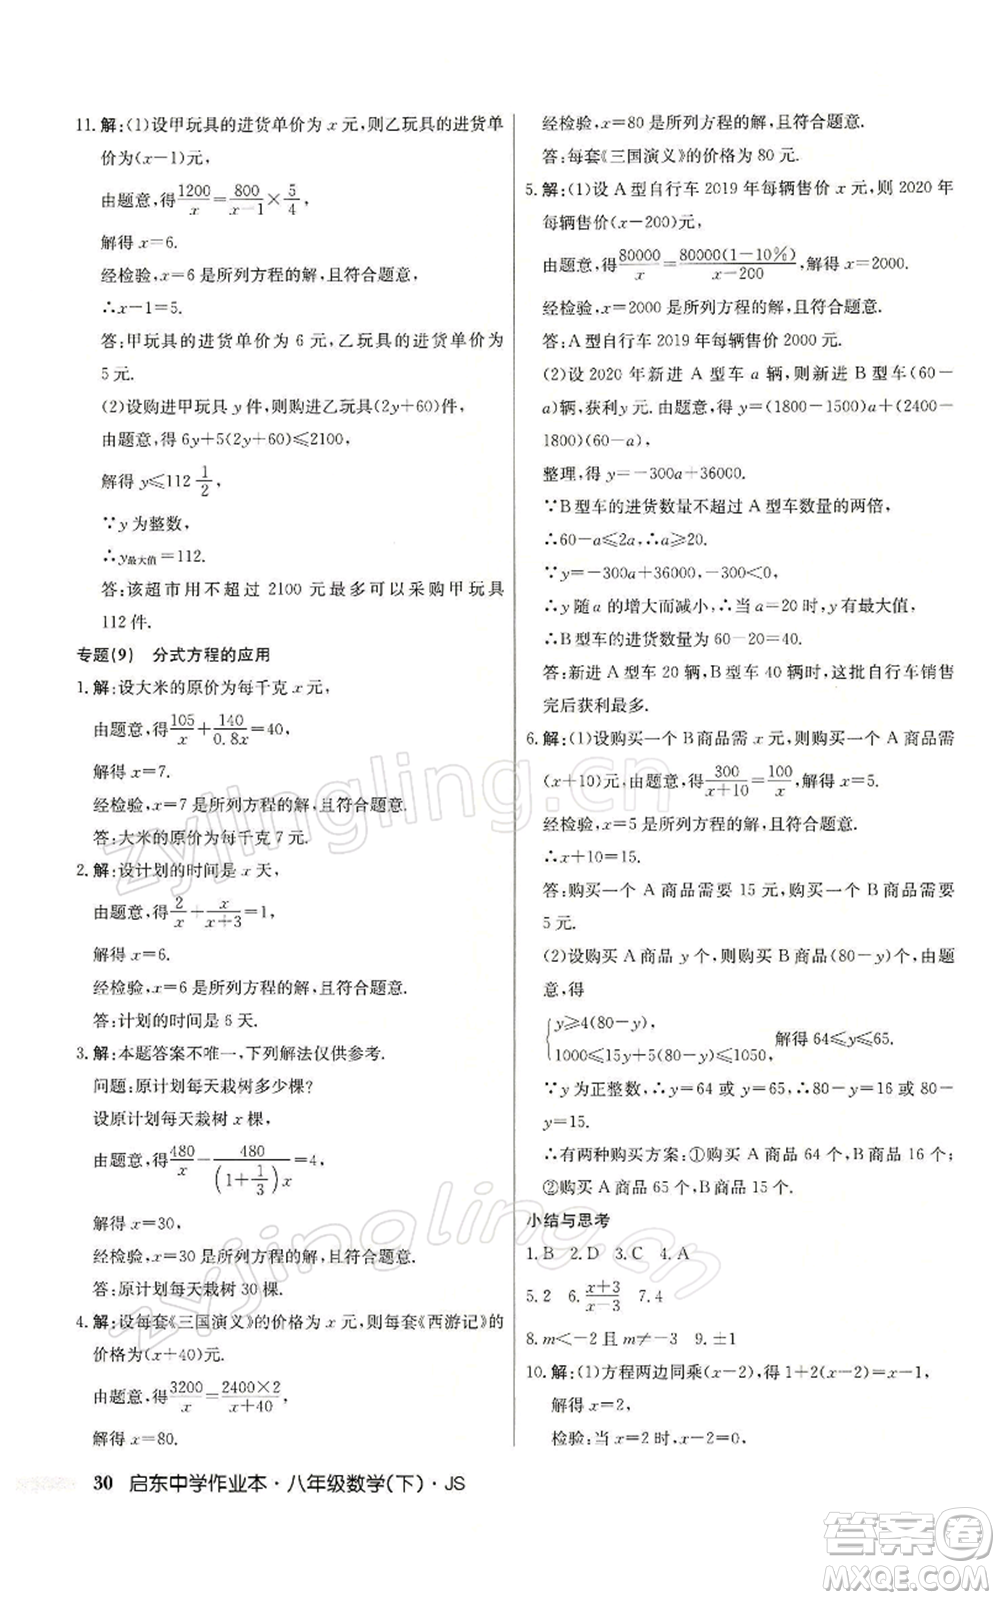 11. 解:(1)设甲玩具的进货单价为 x 元,则乙玩具的进货单
价为(x−1)元,
由题意,得1200/x=800/(x−1)×5/4,
解得 x=6.
经检验,x=6 是所列方程的解,且符合题意,
∴x−1=5.
答:甲玩具的进货单价为 6 元,乙玩具的进货单价为
5 元.
(2)设购进甲玩具 y 件,则购进乙玩具(2y+60)件,
由题意,得 6y+5(2y+60)≤2100,
解得 y≤112 1/2,
∵y 为整数,
∴y最大值=112.
答:该超市用不超过 2100 元最多可以采购甲玩具
112 件.
专题(9) 分式方程的应用
1. 解:设大米的原价为每千克 x 元,
由题意,得105/x+140/0.8x=40,
解得 x=7.
经检验,x=7 是所列方程的解,且符合题意.
答:大米的原价为每千克 7 元.
2. 解:设计划的时间是 x 天,
由题意,得2/x+x/(x+3)=1,
解得 x=6.
经检验,x=6 是所列方程的解,且符合题意.
答:计划的时间是 6 天.
3. 解:本题答案不唯一,下列解法仅供参考.
问题:原计划每天栽树多少棵?
设原计划每天栽树 x 棵,
由题意,得480/x−480/((1+1/3)x)=4,
解得 x=30,
经检验,x=30 是所列方程的解,且符合题意.
答:原计划每天栽树 30 棵.
4. 解:设每套《三国演义》的价格为 x 元,则每套《西游记》的
价格为(x+40)元.
由题意,得3200/x=2400×2/(x+40),
解得 x=80.
经检验,x=80 是所列方程的解,且符合题意.
答:每套《三国演义》的价格为 80 元.
5. 解:(1)设 A 型自行车 2019 年每辆售价 x 元,则 2020 年
每辆售价(x−200)元,
由题意,得80000/x=80000(1−10%)/(x−200),解得 x=2000.
经检验,x=2000 是所列方程的解,且符合题意.
答:A 型自行车 2019 年每辆售价 2000 元.
(2)设 2020 年新进 A 型车 a 辆,则新进 B 型车(60−
a)辆,获利y 元.由题意,得 y=(1800−1500)a+(2400−
1800)(60−a),
整理,得 y=−300a+36000.
∵B 型车的进货数量不超过 A 型车数量的两倍,
∴60−a≤2a,∴a≥20.
∵y=−300a+36000,−300<0,
∴y 随 a 的增大而减小,∴当 a=20 时,y有最大值,
∴B 型车的进货数量为 60−20=40.
答:新进 A 型车 20 辆,B 型车 40 辆时,这批自行车销售
完后获利最多.
6. 解:(1)设购买一个 B 商品需 x 元,则购买一个 A 商品需
(x+10)元,由题意,得300/(x+10)=100/x,解得 x=5.
经检验,x=5 是所列方程的解,且符合题意.
∴x+10=15.
答:购买一个 A 商品需要 15 元,购买一个 B 商品需要
5 元.
(2)设购买 A 商品 y 个,则购买 B 商品(80−y)个,由题
意,得
{y≥4(80−y),
1000≤15y+5(80−y)≤1050, 解得 64≤y≤65.
∵y 为正整数,∴y=64 或 y=65,∴80−y=16 或 80−
y=15.
∴有两种购买方案:①购买 A 商品 64 个,B 商品 16 个;
②购买 A 商品 65 个,B 商品 15 个.
小结与思考
1. B 2. D 3. C 4. A
5. 2 6. (x+3)/(x−3) 7. 4
8. m<−2 且 m≠−3 9. ±1
10. 解:(1)方程两边同乘(x−2),得 1+2(x−2)=x−1,
解得 x=2,
检验:当 x=2 时,x−2=0,
30 启东中学作业本·八年级数学(下)·JS
zyjingling.cn
zyjingling.cn
答案圈
MXQE.COM